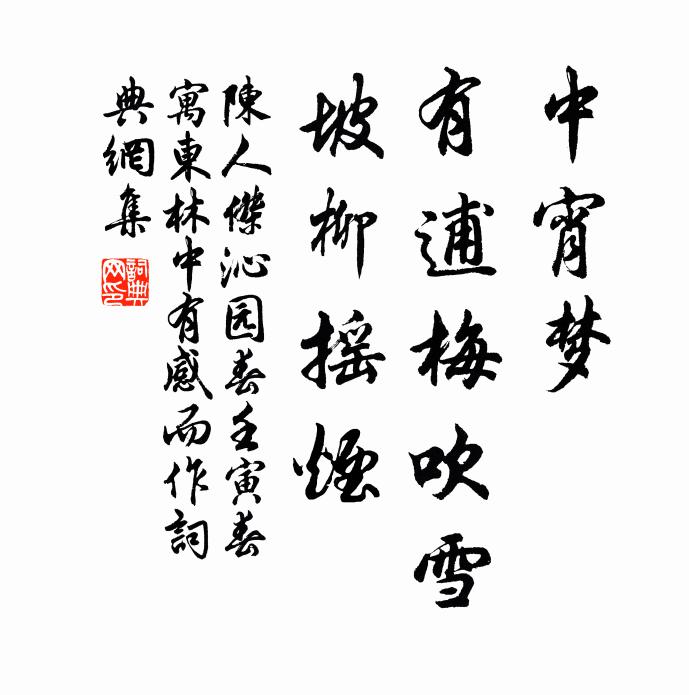 中宵梦
有逋梅吹雪
坡柳摇煙
陳人傑沁园春壬寅春
寓東林中有感而作詞
典網集
詞典
网印